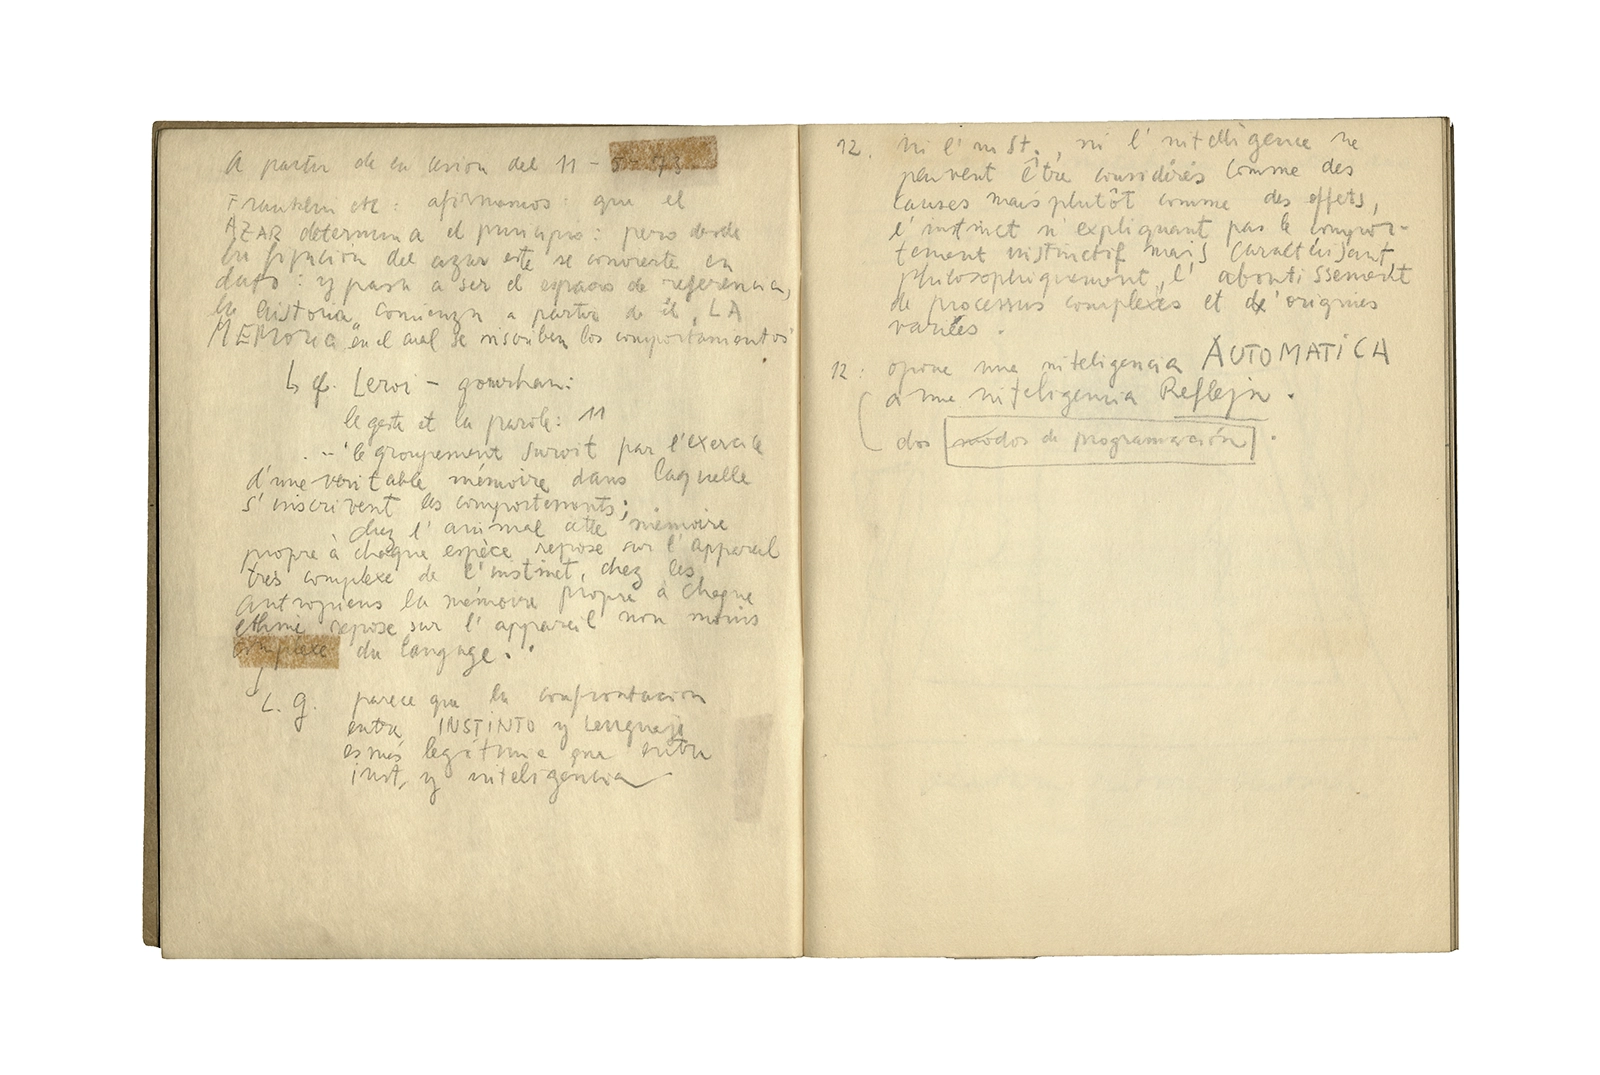 A partir de la sesión del 11 - 5 - 73
Franklin etc : afirmamos : que el
AZAR determina el principio : pero desde
la fijación del azar este se convierte en
dato : y pasa a ser el espacio de referencia,
la historia comienza a partir de él, LA
MEMORIA" en el cual se inscriben los comportamientos
↳ cf. Leroi - gourhan :
le geste et la parole : 11
.. - "le groupement survit par l'exercice
d'une veritable mémoire dans laquelle
s'inscrivent les comportements ;
chez l'animal cette mémoire
propre à chaque espèce repose sur l'appareil
très complexe de l'instinct, chez les
antropiens la mémoire propre à chaque
ethnie repose sur l'appareil non moins
complexe du langage. "
L. g. parece que la confrontacion
entre INSTINTO y Lenguaje
es más legítima que entre
inst, y inteligencia
12. ni l'inst., ni l'intelligence ne
peuvent être considérés comme des
causes mais plutôt comme des effets,
l'instinct n'expliquant pas le compor-
tement instinctif mais caractérisant
philosophiquement, l'aboutissement
de processus complexes et d'origines
variées.
12 : opone una inteligencia AUTOMATICA
a una inteligencia Refleja.
dos modos de programación.